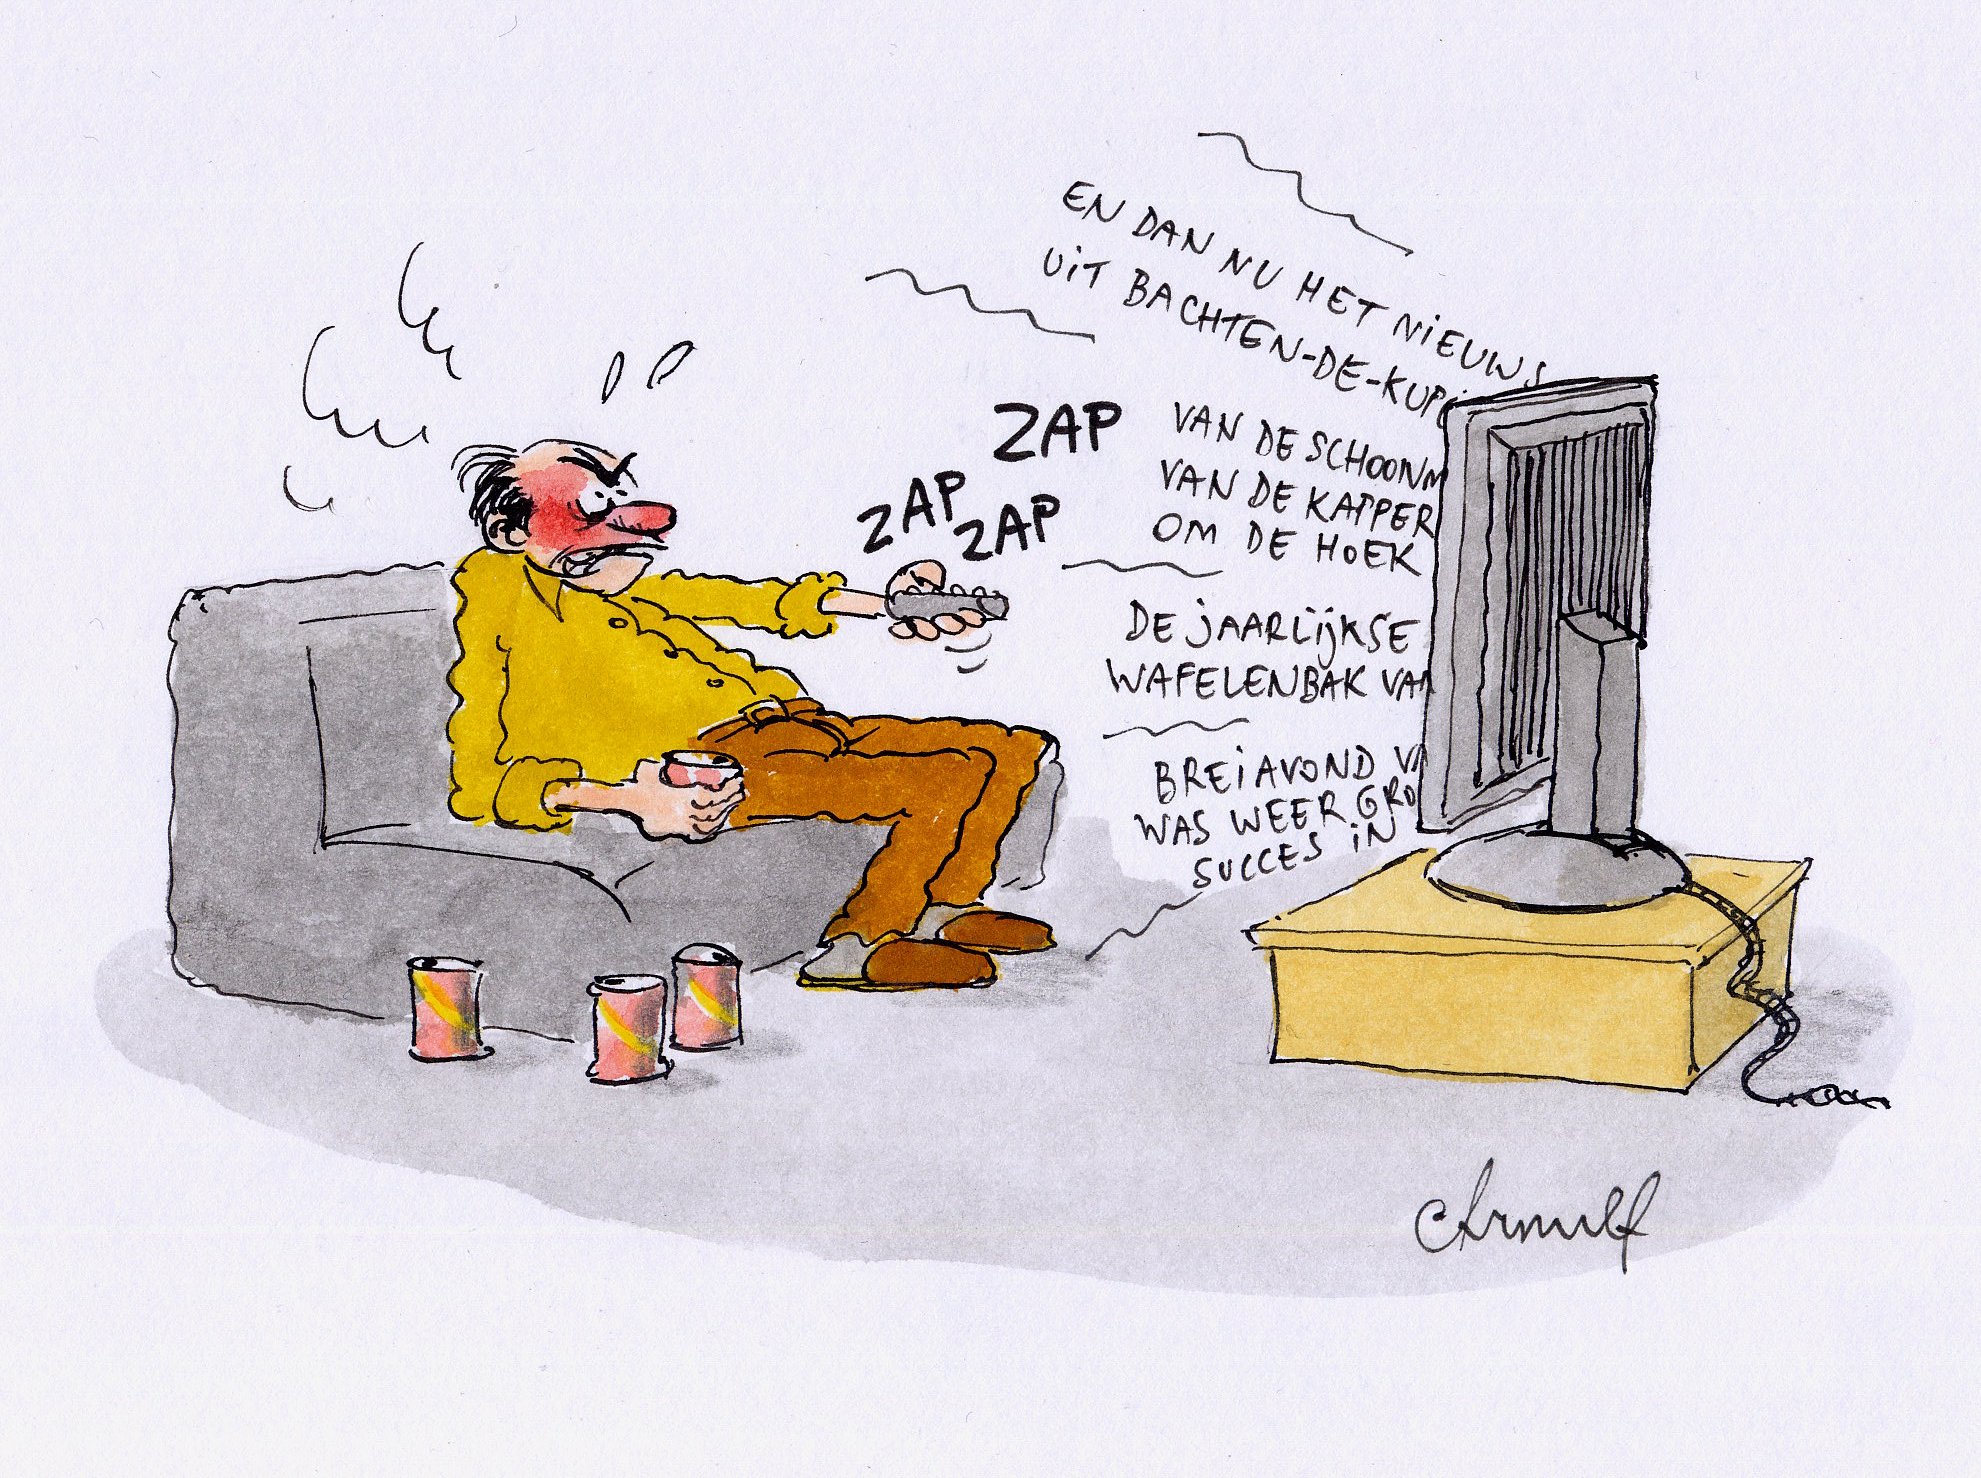 EN DAN NU HET NIEUWS
UIT BACHTEN-DE-KUP
ZAP
ZAP
ZAP
VAN DE SCHOONM
VAN DE KAPPER
OM DE HOEK
DE JAARLIJKSE
WAFELENBAK VAN
BREIAVOND VA
WAS WEER GRO
SUCCES IN